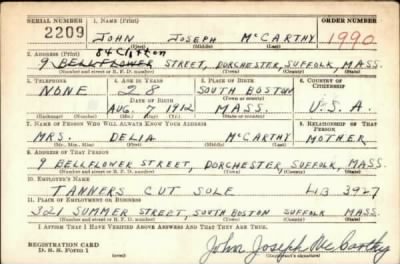 SERIAL NUMBER 1. NAME (Print) ORDER NUMBER
2209 JOHN JOSEPH McCARTHY 1990
(First) (Middle) (Last)
84 Clifton
2. ADDRESS (Print)
9 BELLFLOWER STREET, DORCHESTER, SUFFOLK, MASS.
(Number and street or R. F. D. number) (Town) (County) (State)
3. TELEPHONE 4. AGE IN YEARS 5. PLACE OF BIRTH 6. COUNTRY OF CITIZENSHIP
NONE 28 SOUTH BOSTON
DATE OF BIRTH (Town or county)
AUG. 7 1912 MASS. U.S.A.
(Exchange) (Number) (Mo.) (Day) (Yr.) (State or country)
7. NAME OF PERSON WHO WILL ALWAYS KNOW YOUR ADDRESS 8. RELATIONSHIP OF THAT PERSON
MRS. DELIA McCARTHY MOTHER
(Mr., Mrs., Miss) (First) (Middle) (Last)
9. ADDRESS OF THAT PERSON
9 BELLFLOWER STREET, DORCHESTER, SUFFOLK, MASS.
(Number and street or R. F. D. number) (Town) (County) (State)
10. EMPLOYER'S NAME
TANNERS CUT SOLE LIB 3927
11. PLACE OF EMPLOYMENT OR BUSINESS
321 SUMMER STREET, SOUTH BOSTON SUFFOLK MASS.
(Number and street or R. F. D. number) (Town) (County) (State)
I AFFIRM THAT I HAVE VERIFIED ABOVE ANSWERS AND THAT THEY ARE TRUE.
REGISTRATION CARD
D. S. S. Form 1 (over) John Joseph McCarthy
(Registrant's signature)